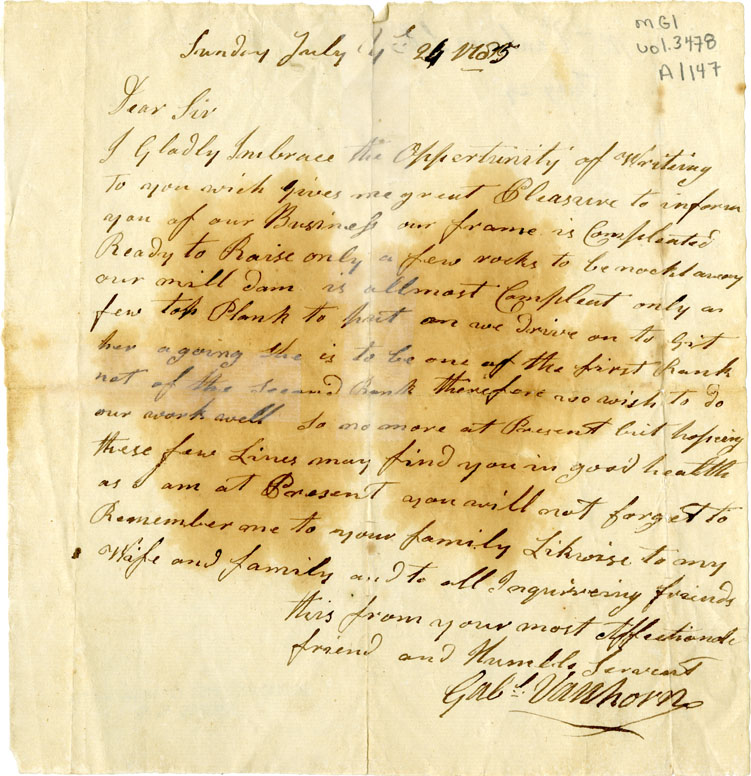 Sunday July ye 24 1785
MG1
vol. 3478
A1147
Dear Sir
I Gladly Imbrace the Oppertunity of Writeing
to you wich gives me great Pleasure to inform
you of our Business our frame is Compleated
Ready to Raise only a few rocks to be nockt away
our mill dam is allmost Compleat only a
few top Plank to put on we drive on to Git
her agoing She is to be one of the first Rank
not of the Second Rank therefore we wish to do
our work well So no more at Present but hopeing
these few Lines may find you in good health
as I am at Present you will not forget to
Remember me to your family Likwise to my
Wife and family and to all Inquireing friends
this from your most Affectionate
friend and Humble Servent
Gabl. Vanhorn